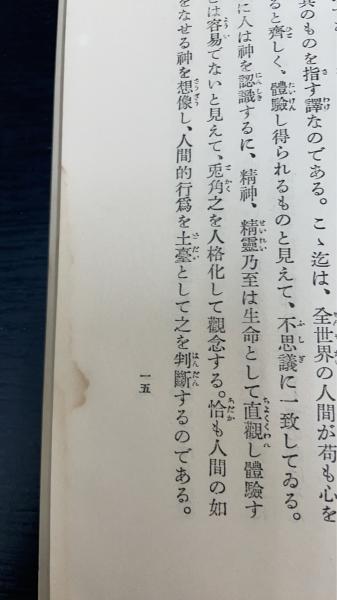 其のものを指す譯なのである。こゝ迄は、全世界の人間が苟も心を
ると齊しく、體驗し得られるものと見えて、不思議に一致してゐる。
に人は神を認識するに、精神、精靈乃至は生命として直觀し體驗す
とは容易でないと見えて、兎角之を人格化して觀念する。恰も人間の如
をなせる神を想像し、人間的行爲を土臺として之を判斷するのである。
一五